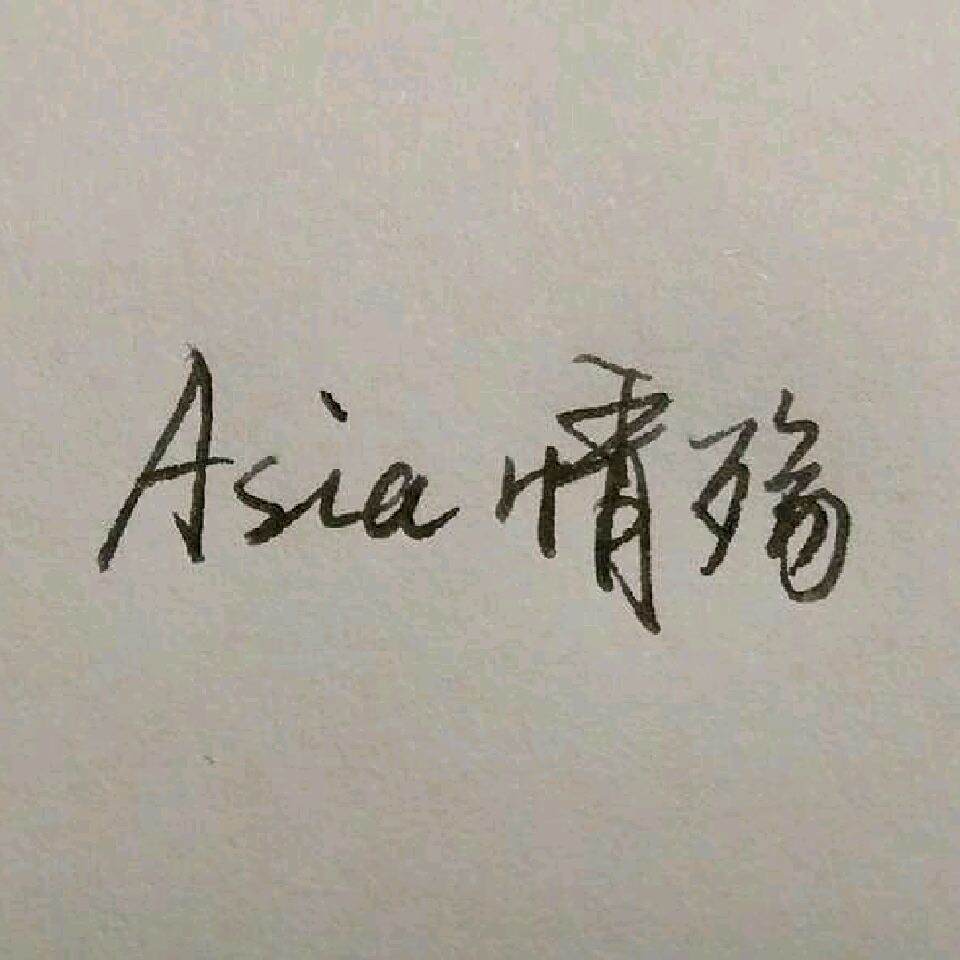 Asia情殇